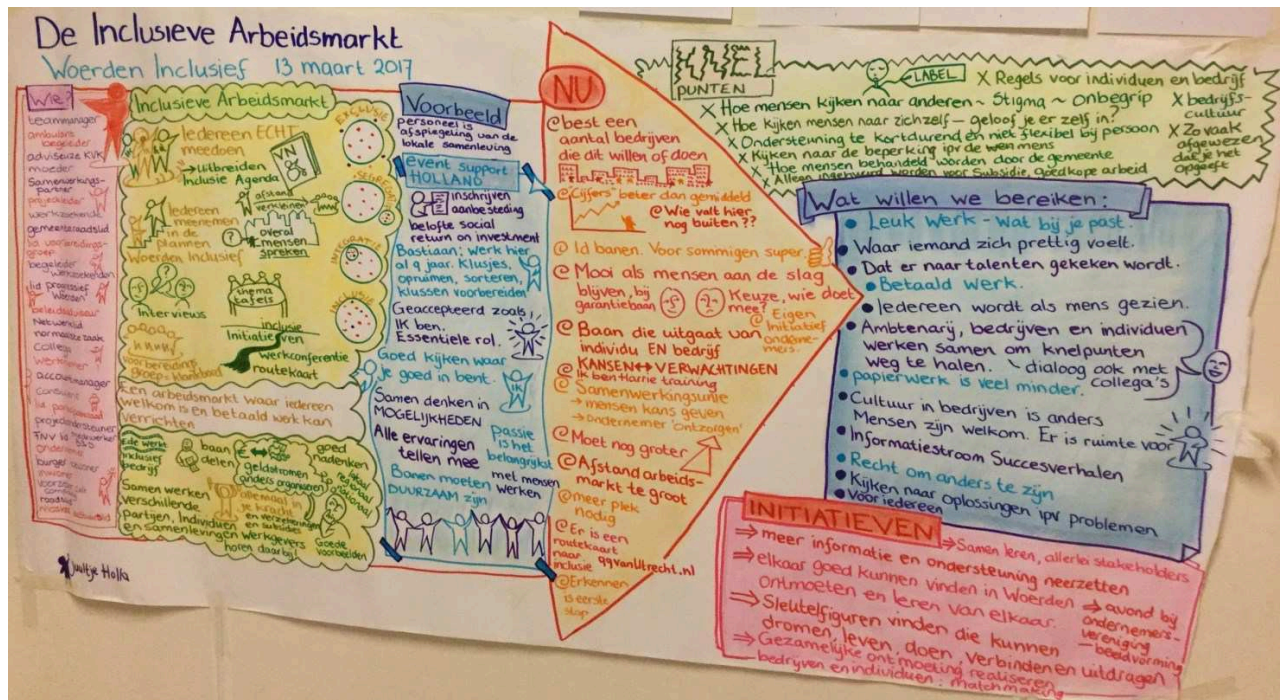 De Inclusieve Arbeidsmarkt
Woerden Inclusief 13 maart 2017
Wie?
teammanager
ambulant
begeleider
adviseuze KVK
moeder
Samenwerkings-
partner
projectleider
werkzoekende
gemeenteraadslid
begeleider
werkzoekenden
lid progressief
Woerden
beleidsadviseur
Netwerklid
normaalste zaak
College
accountmanager
Consulent
projectondersteuner
ondernemer
burger
Inclusieve Arbeidsmarkt
Iedereen ECHT
meedoen
→ Uitbreiden
Inclusie Agenda
VN
afstand
verkleinen
Iedereen
meenemen
in de
plannen
Woerden Inclusief
overal
mensen
spreken
Interviews
thema
tafels
inclusie
Initiatieven
werkconferentie
routekaart
voorbereidings
groep + klankbord
EXCLUSIE
SEGREGATIE
INTEGRATIE
INCLUSIE
Een arbeidsmarkt waar iedereen
welkom is en betaald werk kan
verrichten
Ede werkt
inclusief
bedrijf
baan
delen
geldstromen
anders organiseren
goed
nadenken
lokaal
regionaal
Samen werken
verschillende
partijen, Individuen
en samenlevingen werkgevers
horen daarbij
allemaal in
je kracht
en verzekeringen
en subsidies
Goede
voorbeelden
Juultje Holla
Voorbeeld
personeel is
afspiegeling van de
lokale samenleving
event support
HOLLAND
inschrijven
aanbesteding
belofte social
return on investment
Bastiaan: werk hier
al 9 jaar. Klusjes,
opruimen, sorteren,
klussen voorbereiden
Geaccepteerd zoals
IK ben.
Essentiele rol.
Goed kijken waar
je goed in bent.
IK
Samen denken in
MOGELIJKHEDEN
Alle ervaringen
tellen mee
Passie
is het
belangrijkst
Banen moeten
DUURZAAM zijn
met mensen
werken
NU
@ best een
aantal bedrijven
die dit willen of doen
@ "Cijfers" beter dan gemiddeld
@ Wie valt hier
nog buiten??
@ Id banen. Voor sommigen super.
@ Mooi als mensen aan de slag
blijven, bij
garantiebaan
Keuze, wie doet
mee?
@ Eigen
Initiatief
onderne-
mers.
@ Baan die uitgaat van
individu EN bedrijf
@ KANSEN ↔ VERWACHTINGEN
Ik ben Harrie training
@ Samenwerkingsunie
→ mensen kans geven
→ ondernemer 'ontzorgen'
@ Moet nog groter
@ Afstand arbeids-
markt te groot
@ meer plek
nodig
@ Er is een
routekaart
naar
inclusie 99vanUtrecht.nl
@ Erkennen
is eerste
stap
KNEL
PUNTEN
LABEL
X Regels voor individuen en bedrijf
X Hoe mensen kijken naar anderen ~ Stigma ~ onbegrip
X bedrijfs-
cultuur
X Hoe kijken mensen naar zichzelf – geloof je er zelf in?
X Ondersteuning te kortdurend en niet flexibel bij persoon
X Zo vaak
afgewezen
dat je het
opgeeft
X Kijken naar de beperking ipv de wen mens
X Hoe mensen behandeld worden door de gemeente
X Alleen ingehuurd worden voor subsidie, goedkope arbeid
Wat willen we bereiken:
• Leuk werk – wat bij je past.
• Waar iemand zich prettig voelt.
• Dat er naar talenten gekeken wordt.
• Betaald werk.
• Iedereen wordt als mens gezien.
• Ambtenarij, bedrijven en individuen
werken samen om knelpunten
weg te halen.
dialoog ook met
collega's
• papierwerk is veel minder.
• Cultuur in bedrijven is anders
Mensen zijn welkom. Er is ruimte voor
• Informatiestroom Succesverhalen
• Recht om anders te zijn
• Kijken naar oplossingen ipv problemen
• Voor iedereen
INITIATIEVEN
⇒ Samen leren, allerlei stakeholders
⇒ meer informatie en ondersteuning neerzetten
⇒ elkaar goed kunnen vinden in Woerden
ontmoeten en leren van elkaar.
⇒ avond bij
ondernemers-
vereniging
– beeldvorming
⇒ Sleutelfiguren vinden die kunnen
dromen, leven, doen, verbinden en uitdragen
⇒ Gezamelijke ontmoeting realiseren
– bedrijven en individuen: matchmaking